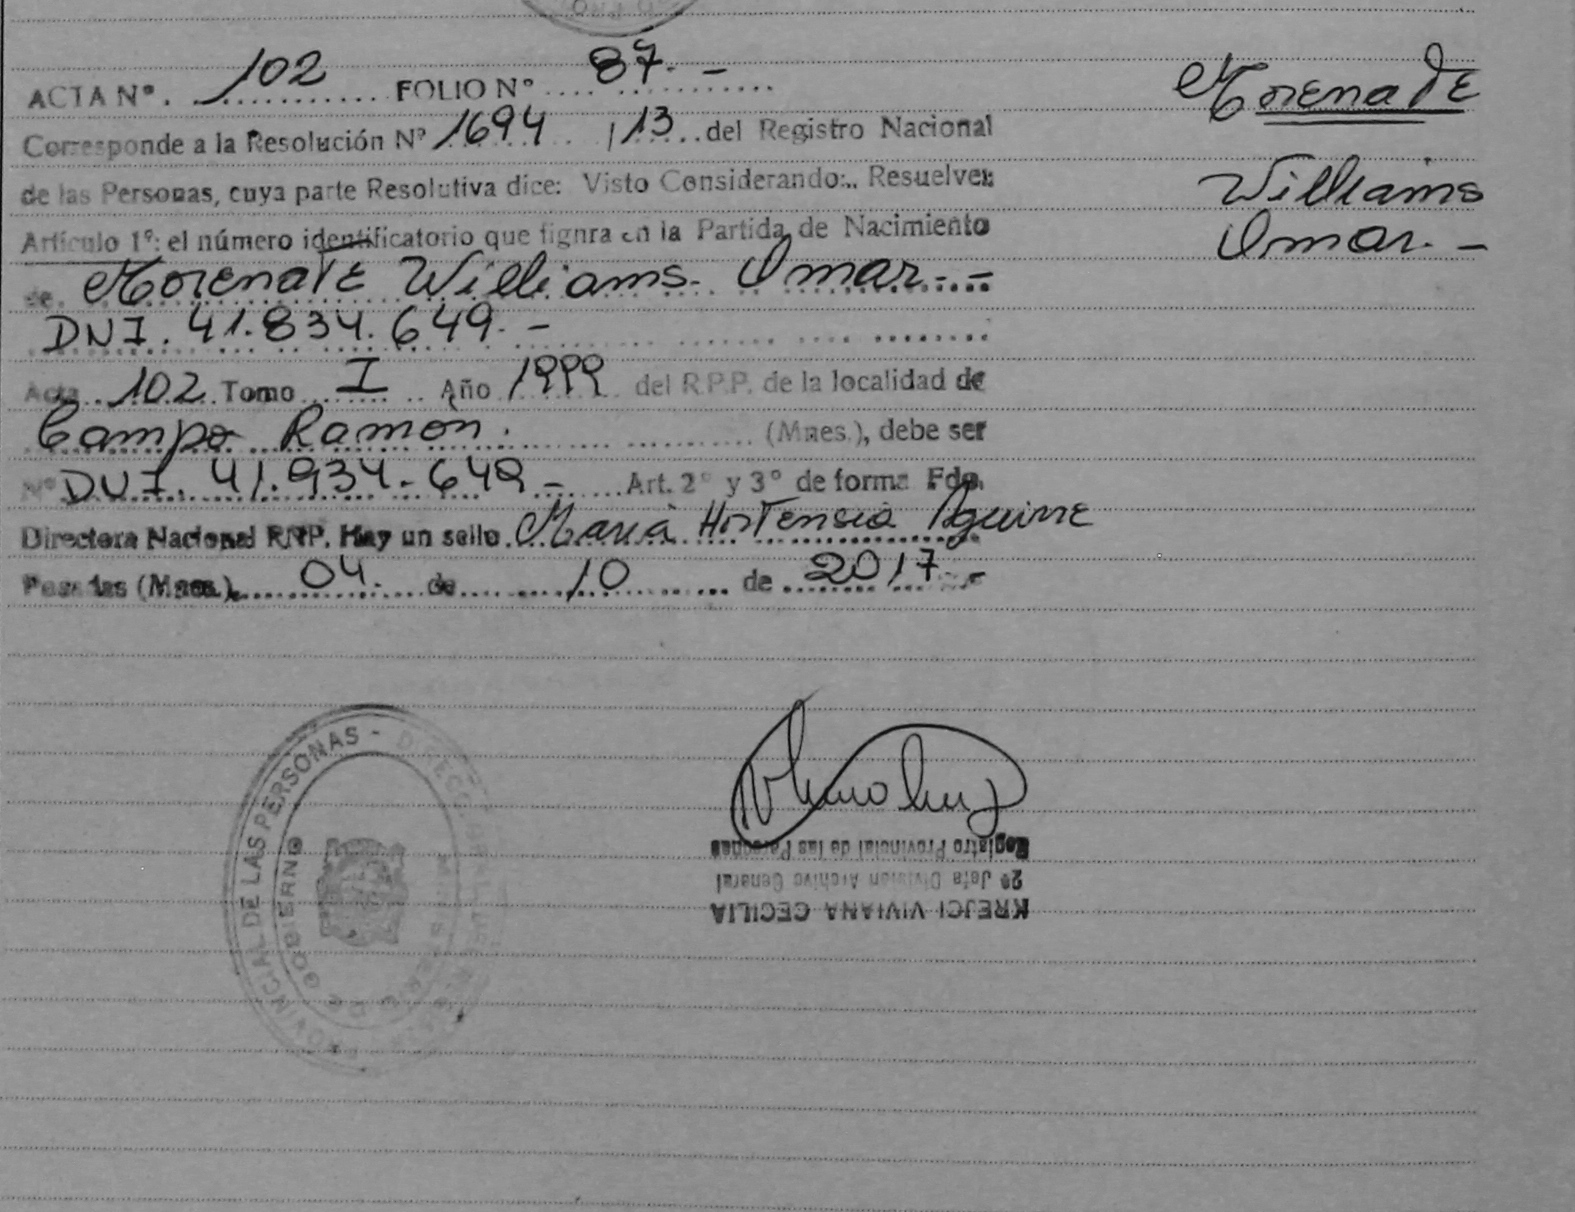 ACTA Nº. 102 FOLIO Nº 87. -
Corresponde a la Resolución Nº 1694 / 13 del Registro Nacional
de las Personas, cuya parte Resolutiva dice: Visto Considerando:.. Resuelve:
Artículo 1º: el número identificatorio que fignra en la Partida de Nacimiento
de. Morenate Williams. Omar. -
DNI. 41.834.649. -
Acta 102 Tomo I Año 1999 del R.P.P. de la localidad de
Campo Ramón. (Mnes.), debe ser
Nº DNI. 41.934.649 - Art. 2º y 3º de forma Fdo.
Directora Nacional RNP. Hay un sello María Hortensia Aguirre
Posadas (Mnes.), 04. de 10 de 2017. -
Morenate
Williams
Omar. -
PROVINCIAL DE LAS PERSONAS -
DE GOBIERNO
Registro Provincial de las Personas
2º Jefa División Archivo General
KREJCI VIVIANA CECILIA